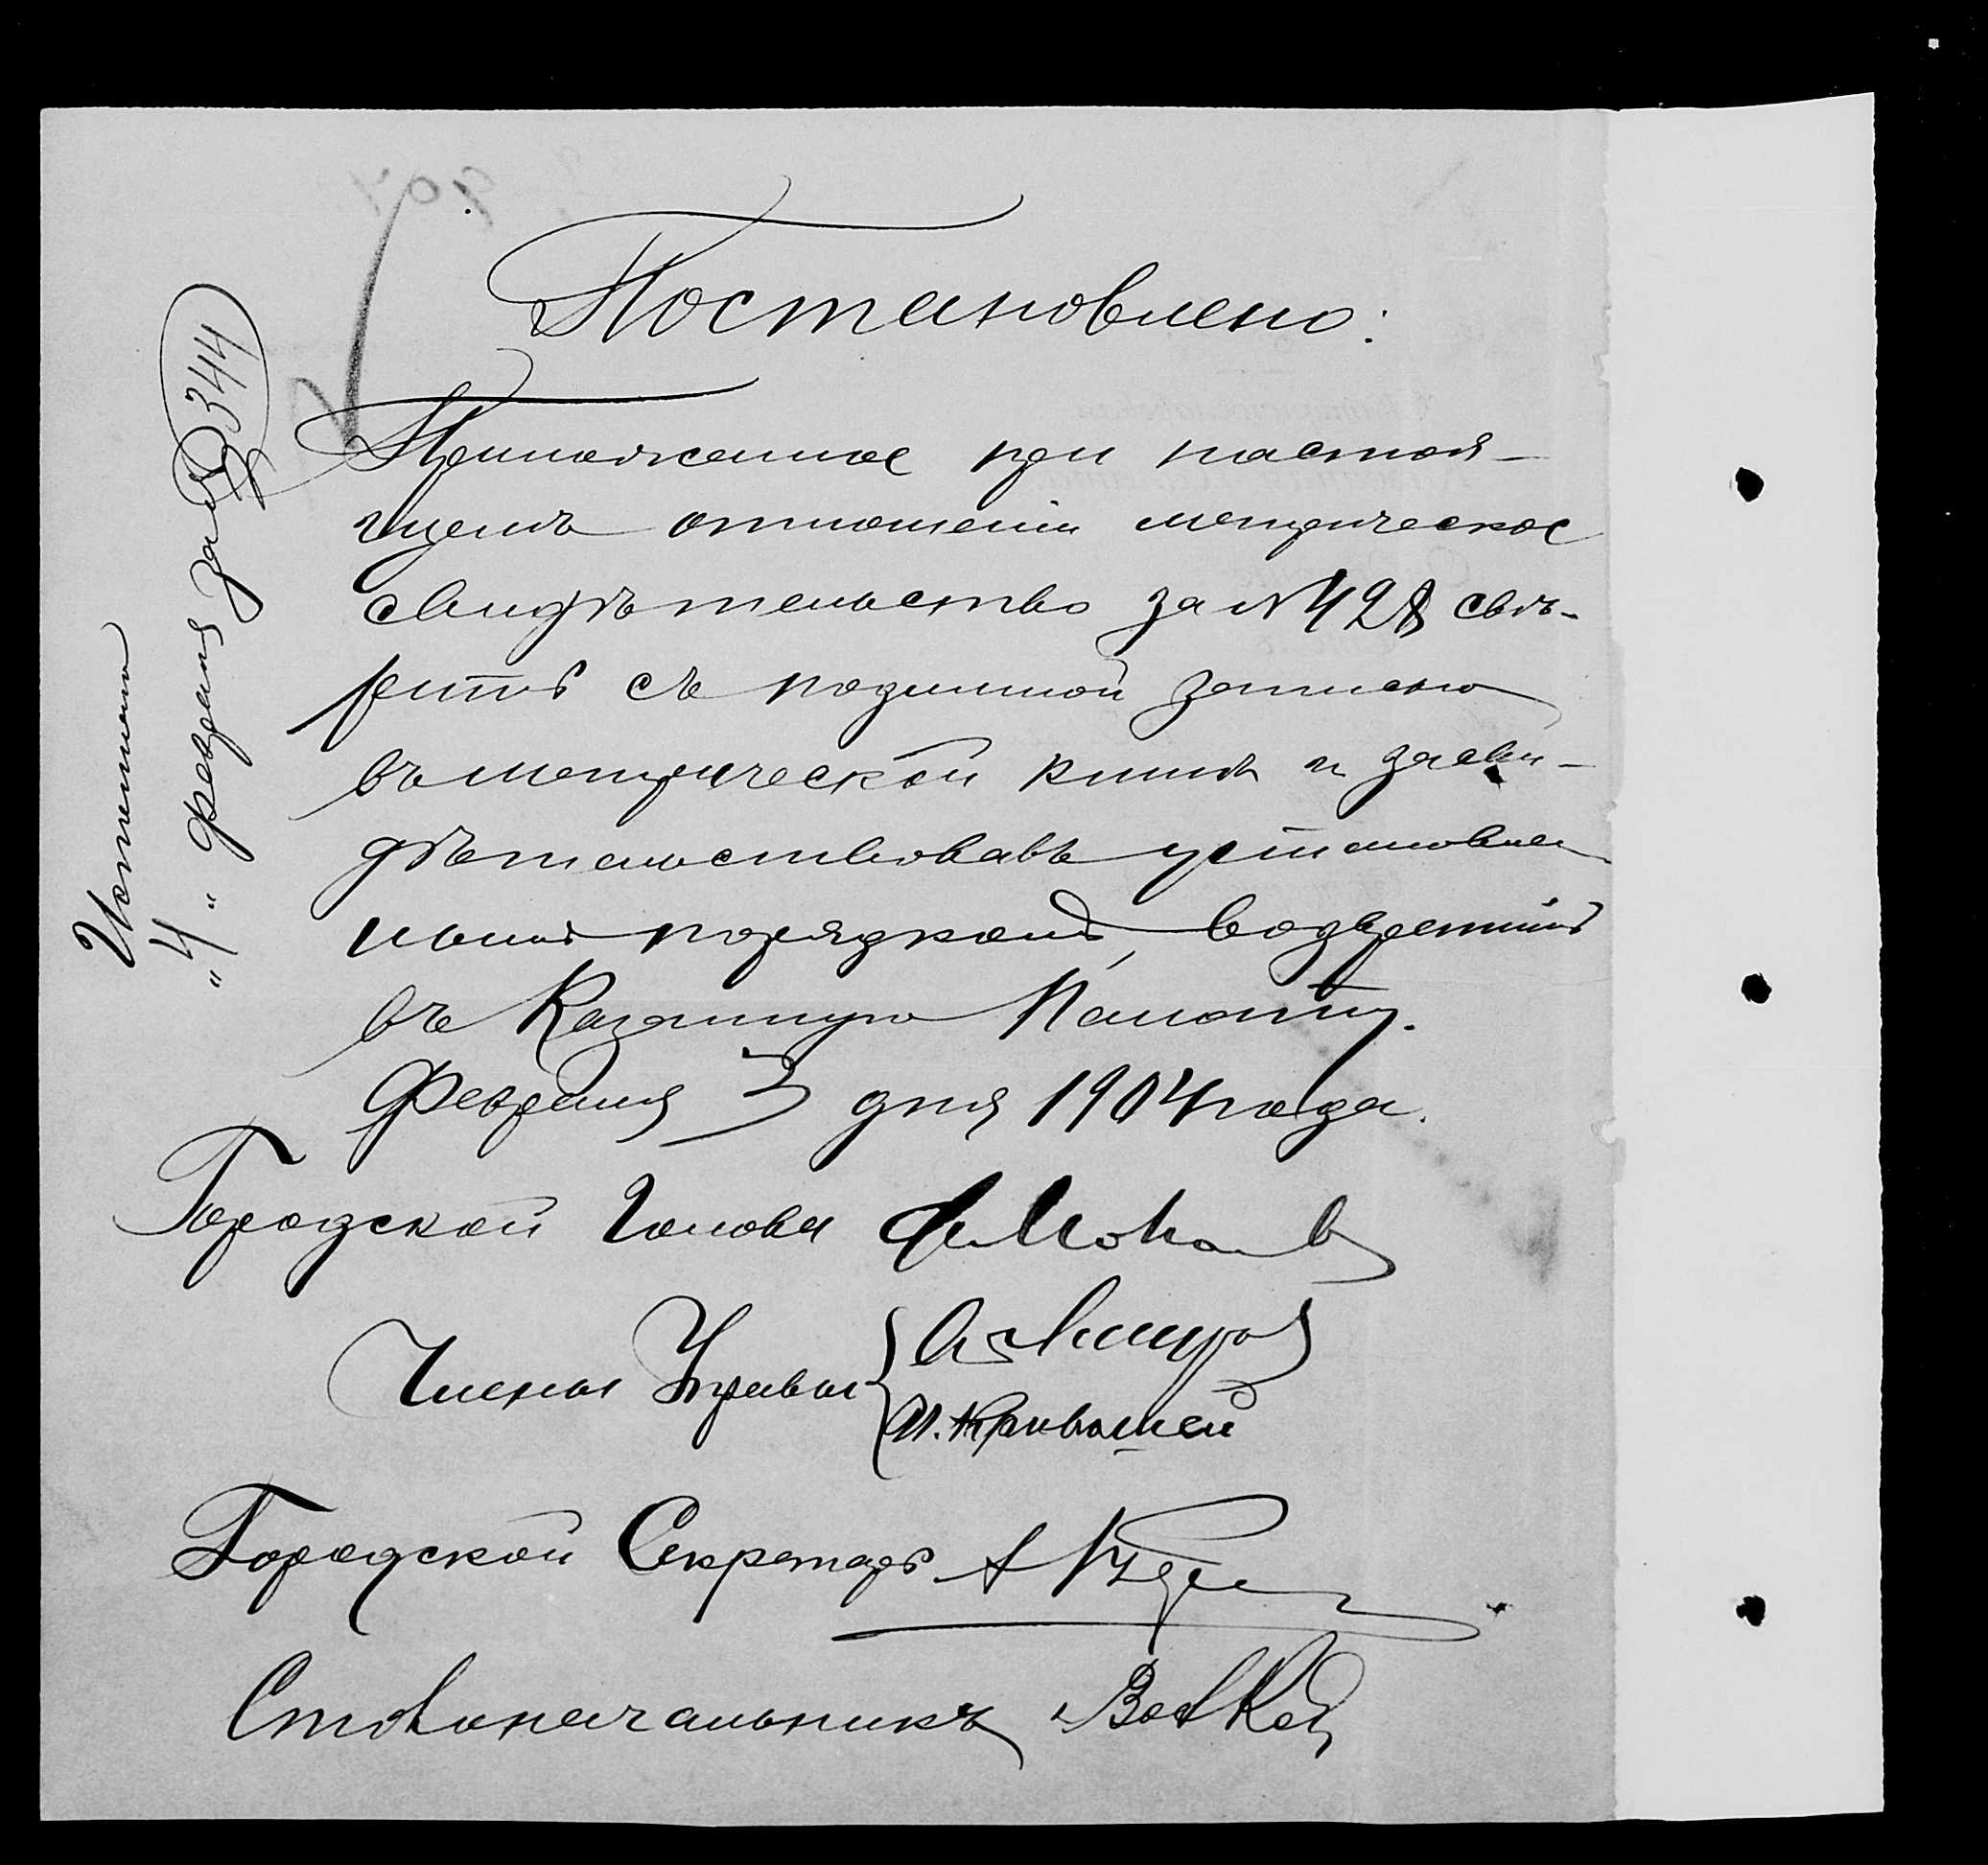 Постановлено:
Приложенное при настоя-
щемъ отношеніи метрическое
свидѣтельство за № 428 свѣ-
рить съ подлинной записью
въ метрической книгѣ и засви-
дѣтельствовавъ установлен
нымъ порядкомъ, возвратить
въ Казенную Палату.
Февраля 3 дня 1904 года.
Городской Голова
Члены Управы
И. Кривошей
Городской Секретарь А
Столоначальникъ
Исполнено
"4" февраля за № 344